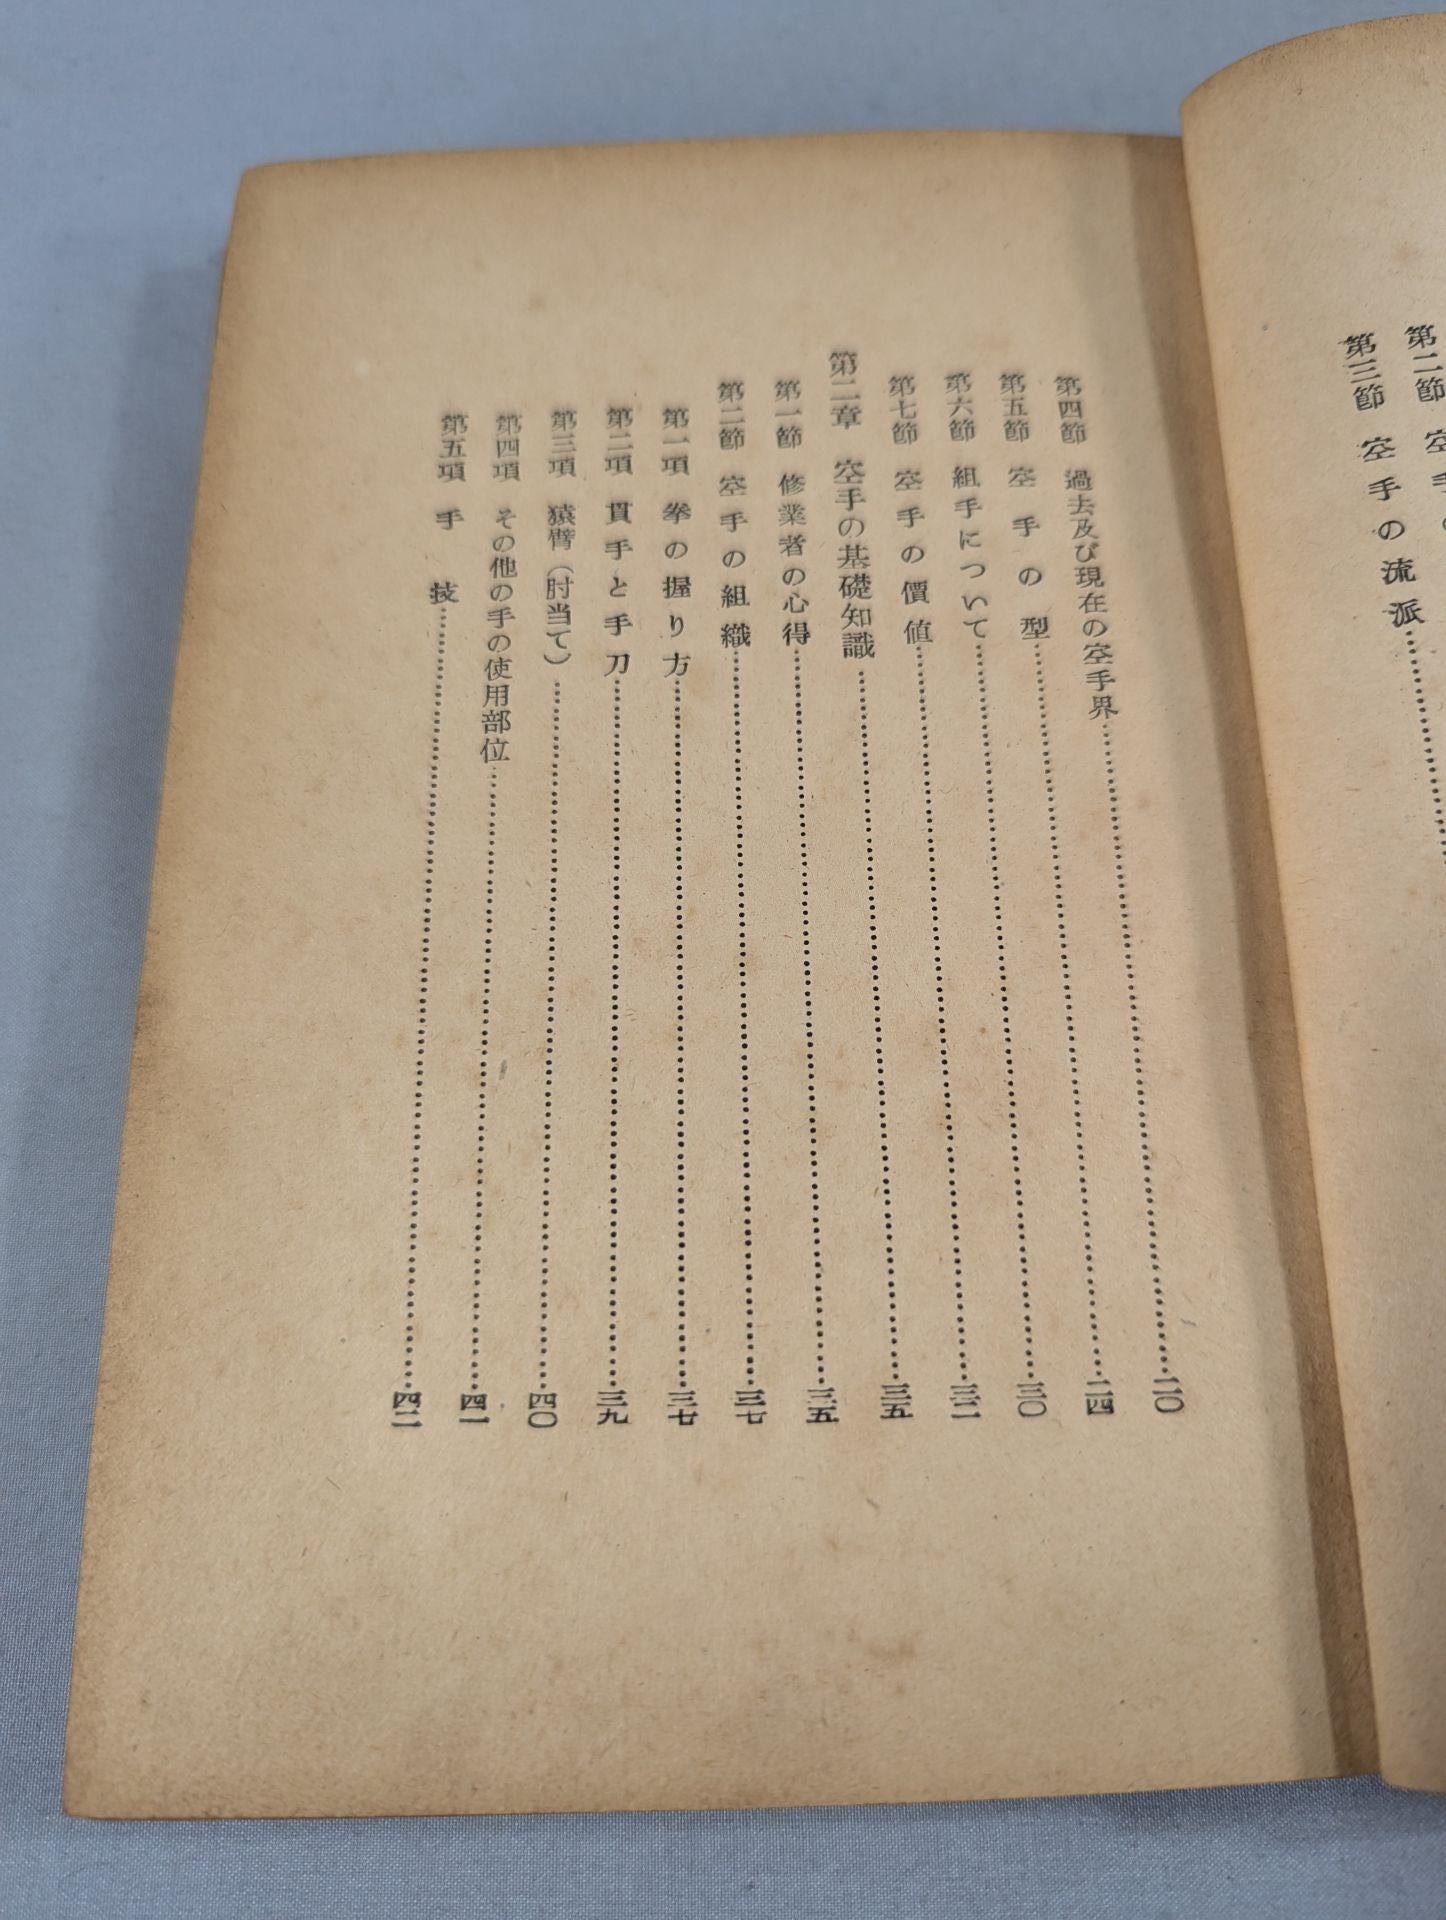 第二節
第三節 空手の流派……
第四節 過去及び現在の空手界……二〇
第五節 空手の型……二四
第六節 組手について……三〇
第七節 空手の價値……三二
第二章 空手の基礎知識……三五
第一節 修業者の心得……三五
第二節 空手の組織……三七
第一項 拳の握り方……三七
第二項 貫手と手刀……三九
第三項 猿臂（肘当て）……四〇
第四項 その他の手の使用部位……四一
第五項 手技……四二